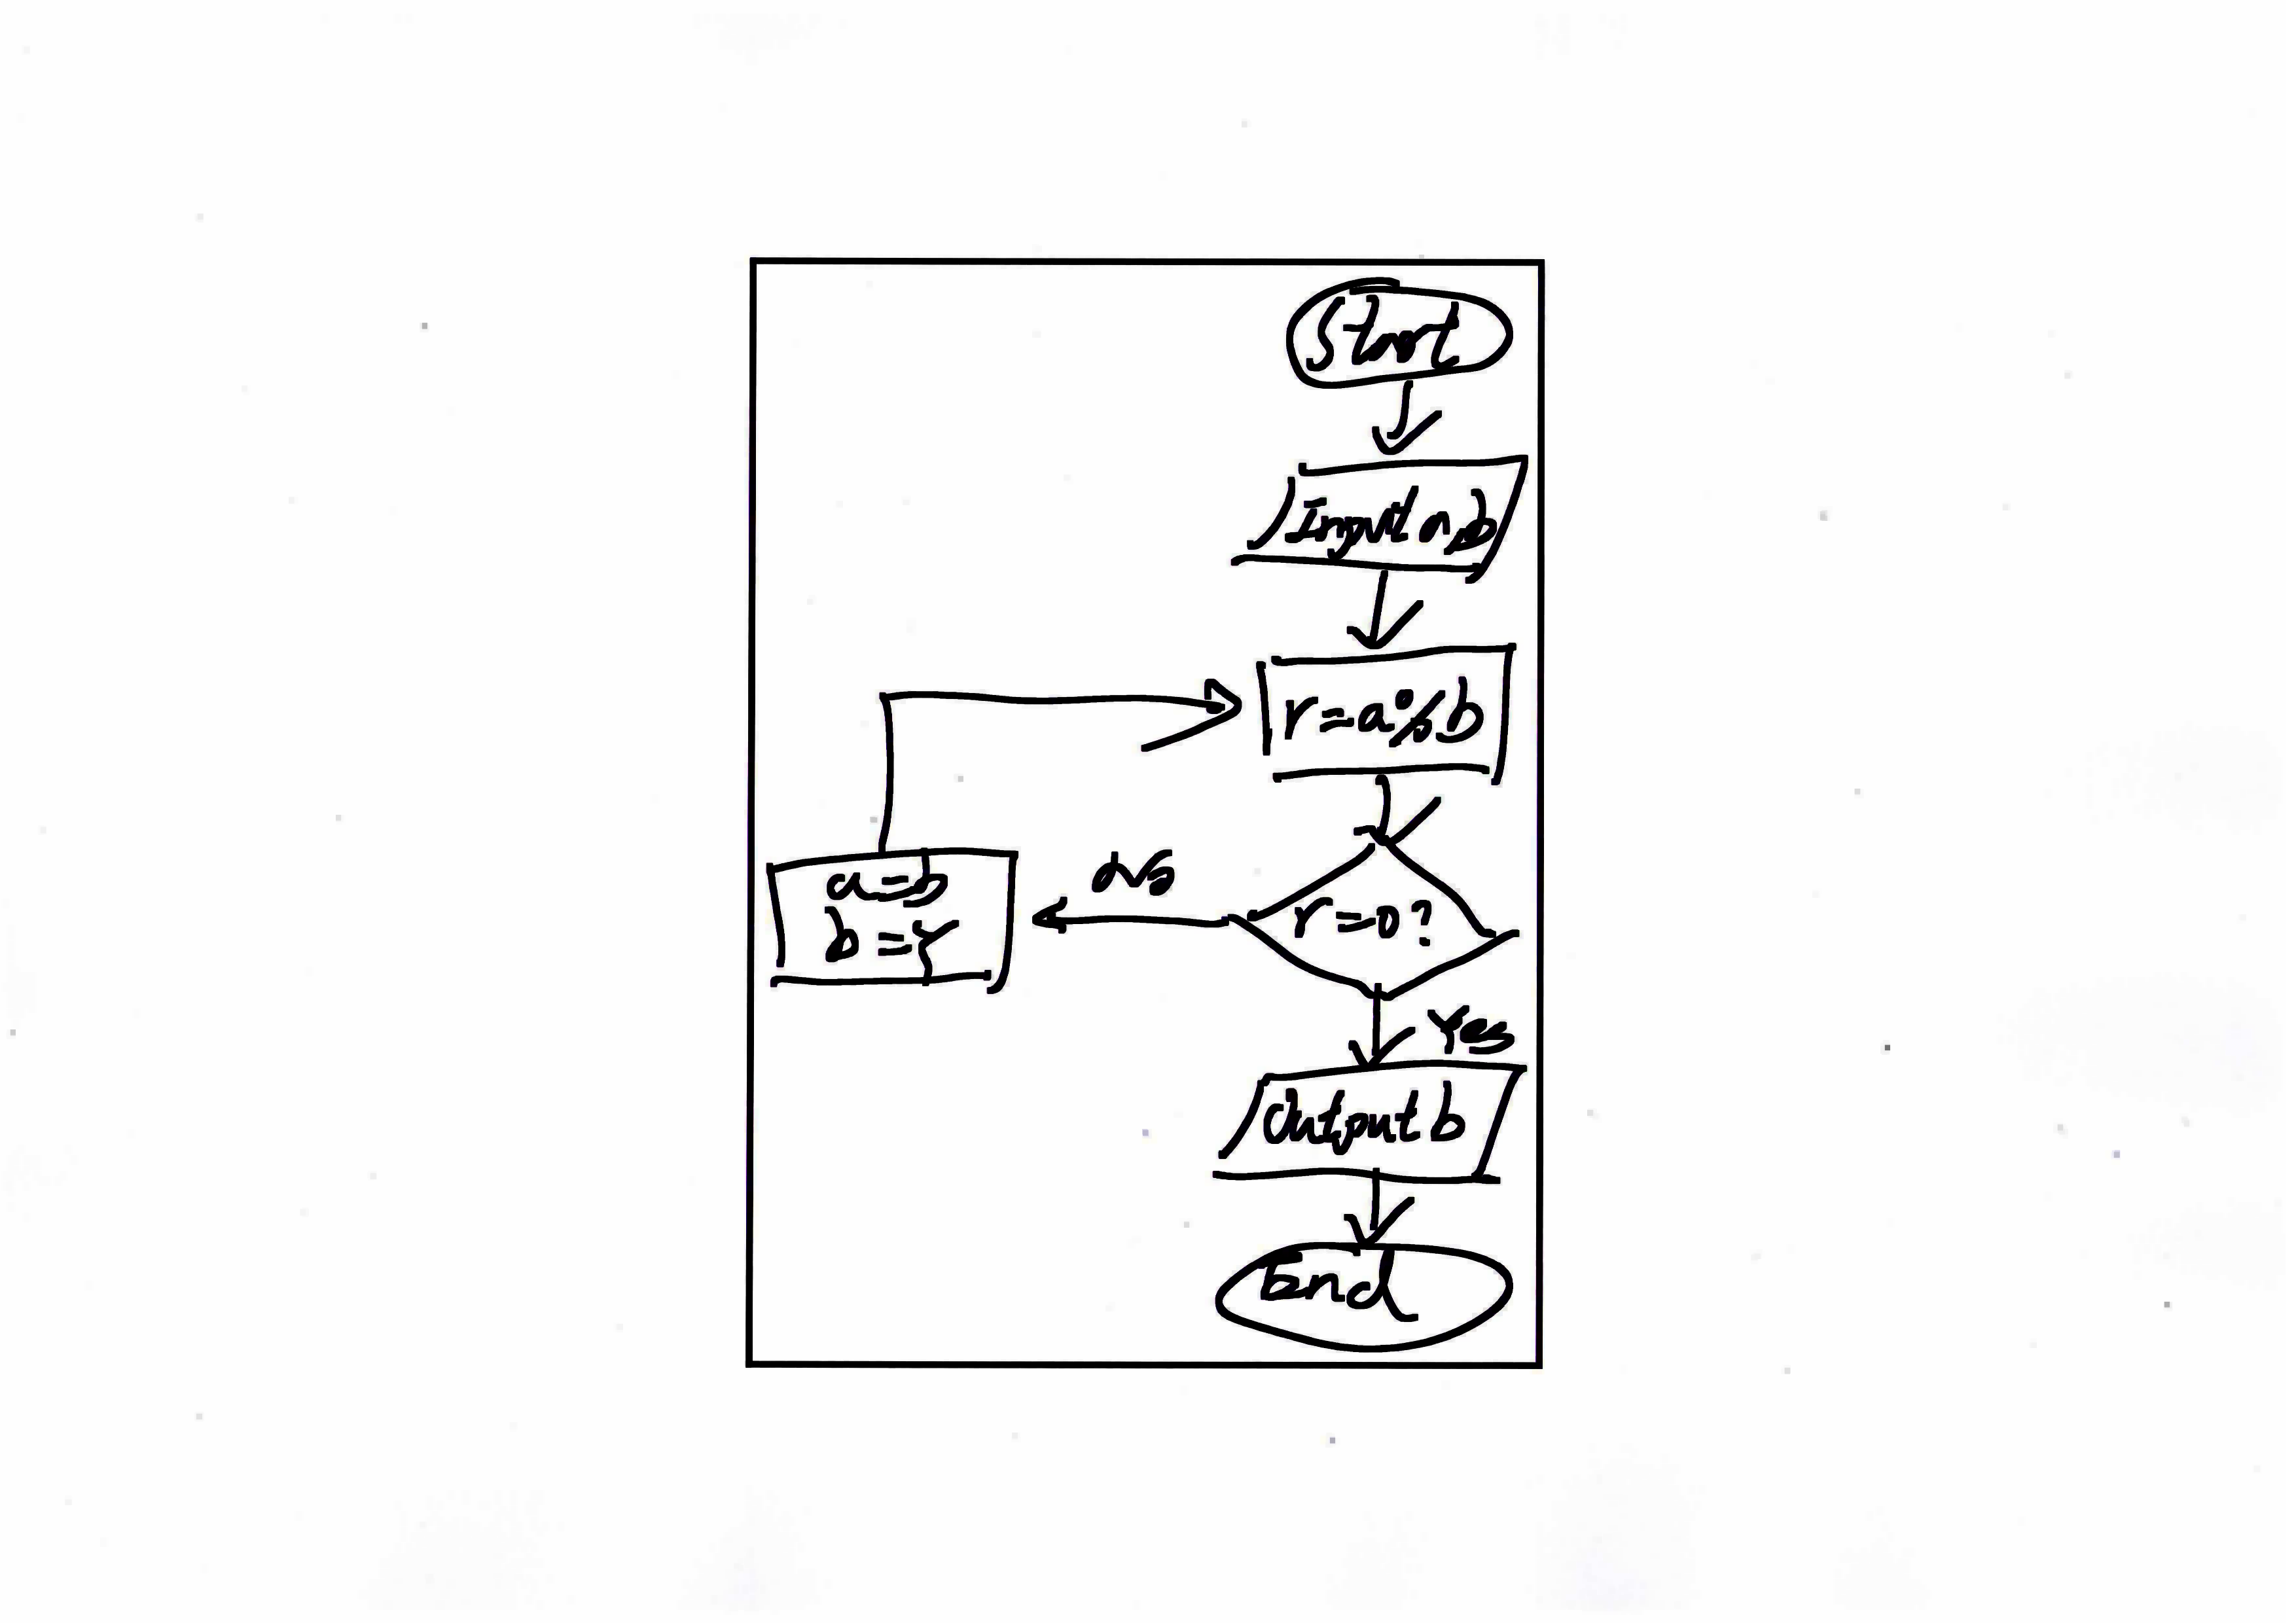 Start
Input a,b
r=a%b
r=0?
No
a=b
b=r
Yes
Output b
End